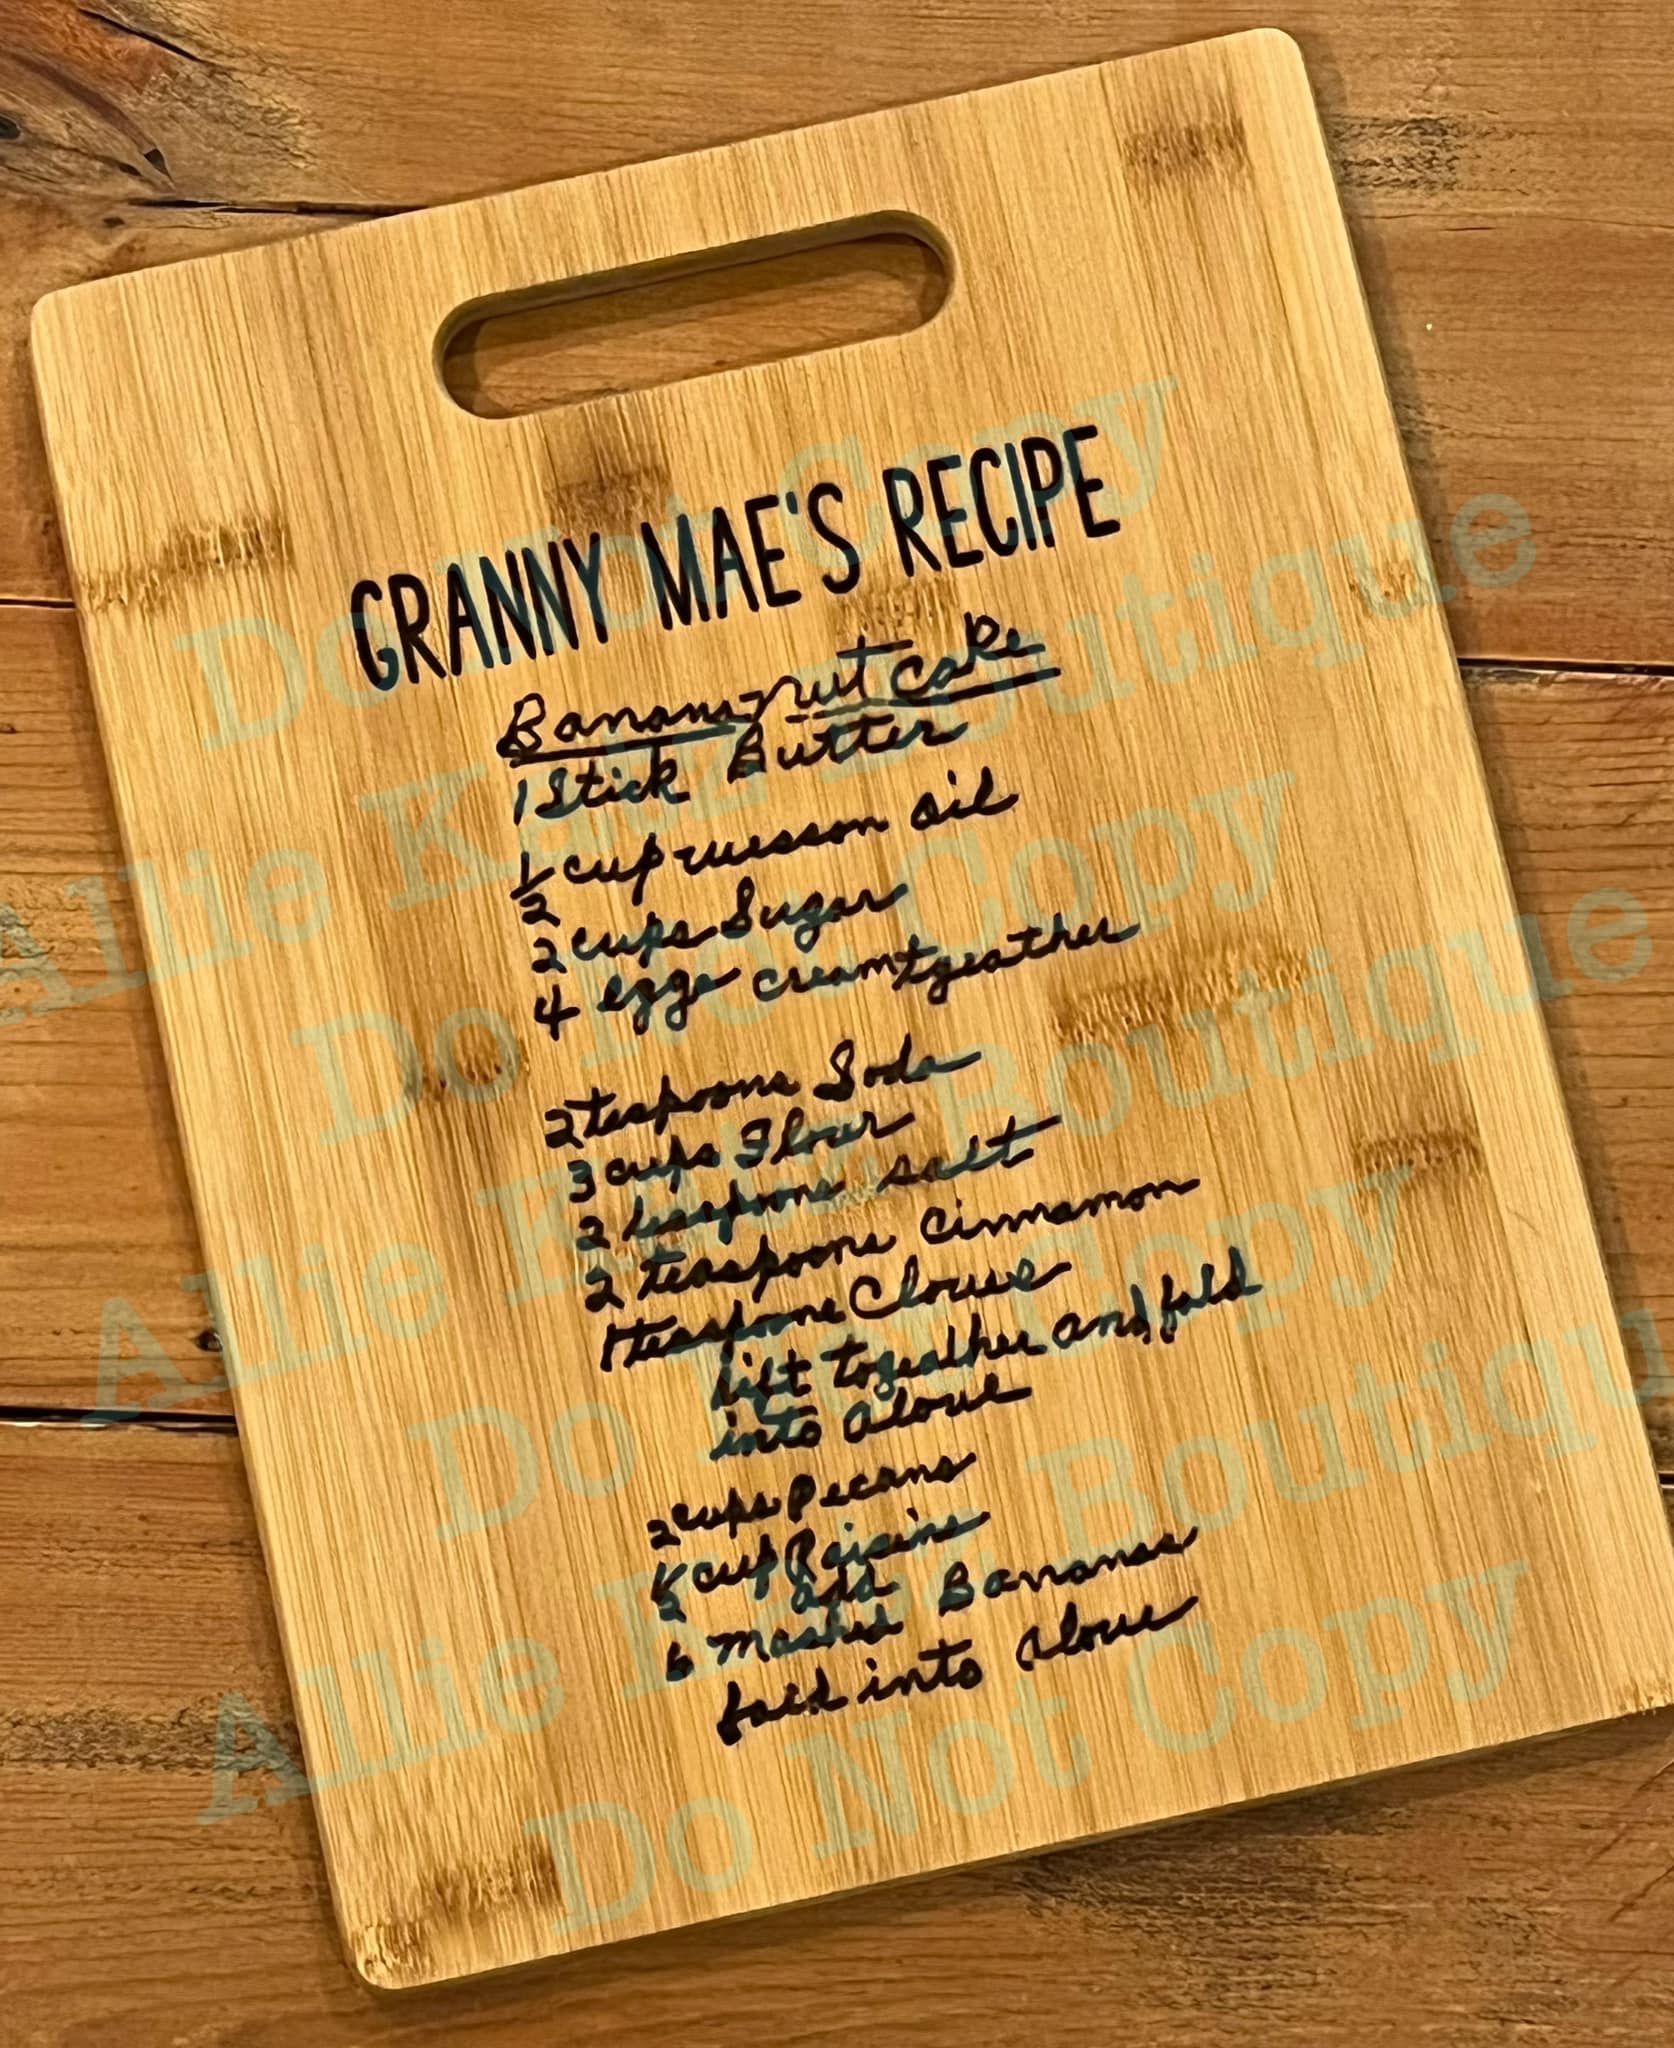 GRANNY MAE'S RECIPE
Banana-nut cake
1 Stick Butter
1/2 cup wesson oil
2 cups Sugar
4 eggs cream tgeather
2 teaspoons Soda
3 cups Flour
2 teaspoons salt
2 teaspoons cinnamon
1 teaspoons Cloves
sift togeather and fold
into above
2 cups Pecans
1/2 cup Raisins
add
6 mashed Bananas
fold into above
Do Not Copy
Allie Katz Boutique
Do Not Copy
Allie Katz Boutique
Do Not Copy
Allie Katz Boutique
Do Not Copy